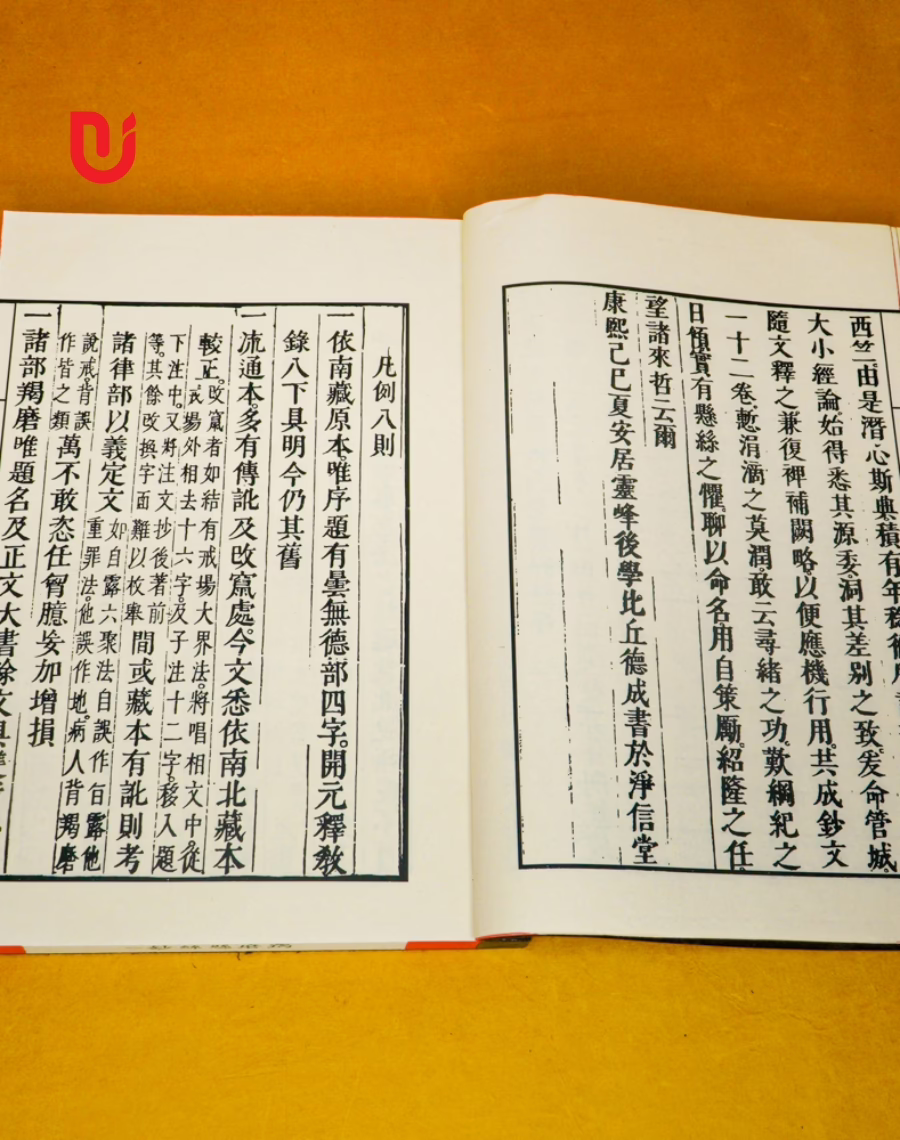 西竺由是潛心斯典積有年
大小經論始得悉其源委洞其差別之致爰命管城
隨文釋之兼復裨補闕略以便應機行用共成鈔文
一十二卷慙涓滴之莫潤敢云尋緒之功歎綱紀之
日頹實有懸絲之懼聊以命名用自策厲紹隆之任
望諸來哲云爾
康熙己巳夏安居靈峰後學比丘德成書於淨信堂
凡例八則
一依南藏原本唯序題有曇無德部四字開元釋教
錄八下具明今仍其舊
一流通本多有傳訛及改竄處今文悉依南北藏本
較正改竄者如結有戒場大界法將唱相文中從
戒場外相去十六字及子注十二字移入題
下注中又將注文抄後著前
等其餘改換字面難以枚舉間或藏本有訛則考
諸律部以義定文如自露六聚法自誤作白露他
重罪法他誤作地病人背羯磨
說戒背誤
作皆之類萬不敢恣任胷臆妄加增損
一諸部羯磨唯題名及正文大書餘文